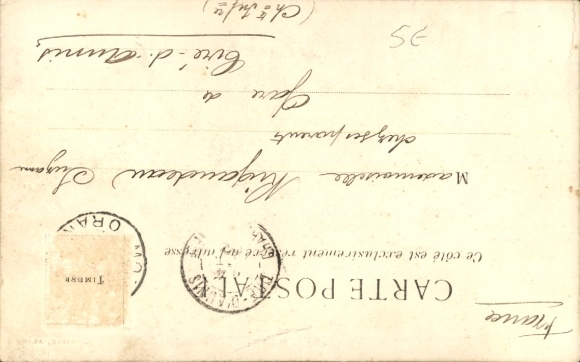 France
CARTE POSTALE
Ce côté est exclusivement réservé à l'adresse
TIMBRE
ORAN
Mademoiselle Rigaudeau Suzanne
chez ses parents
Gare de
Ciré-d'Aunis
(Chte Infre)
35